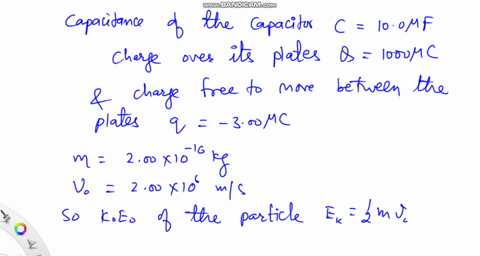 www.BANDICAM.com
Capacitance of the Capacitor C = 10.0 μF
Charge over its plates Q = 1000 μC
& charge free to move between the
plates q = -3.00 μC
m = 2.00 × 10⁻¹⁶ kg
V₀ = 2.00 × 10⁶ m/s
So K.E. of the particle Eₖ = ½ m v₀